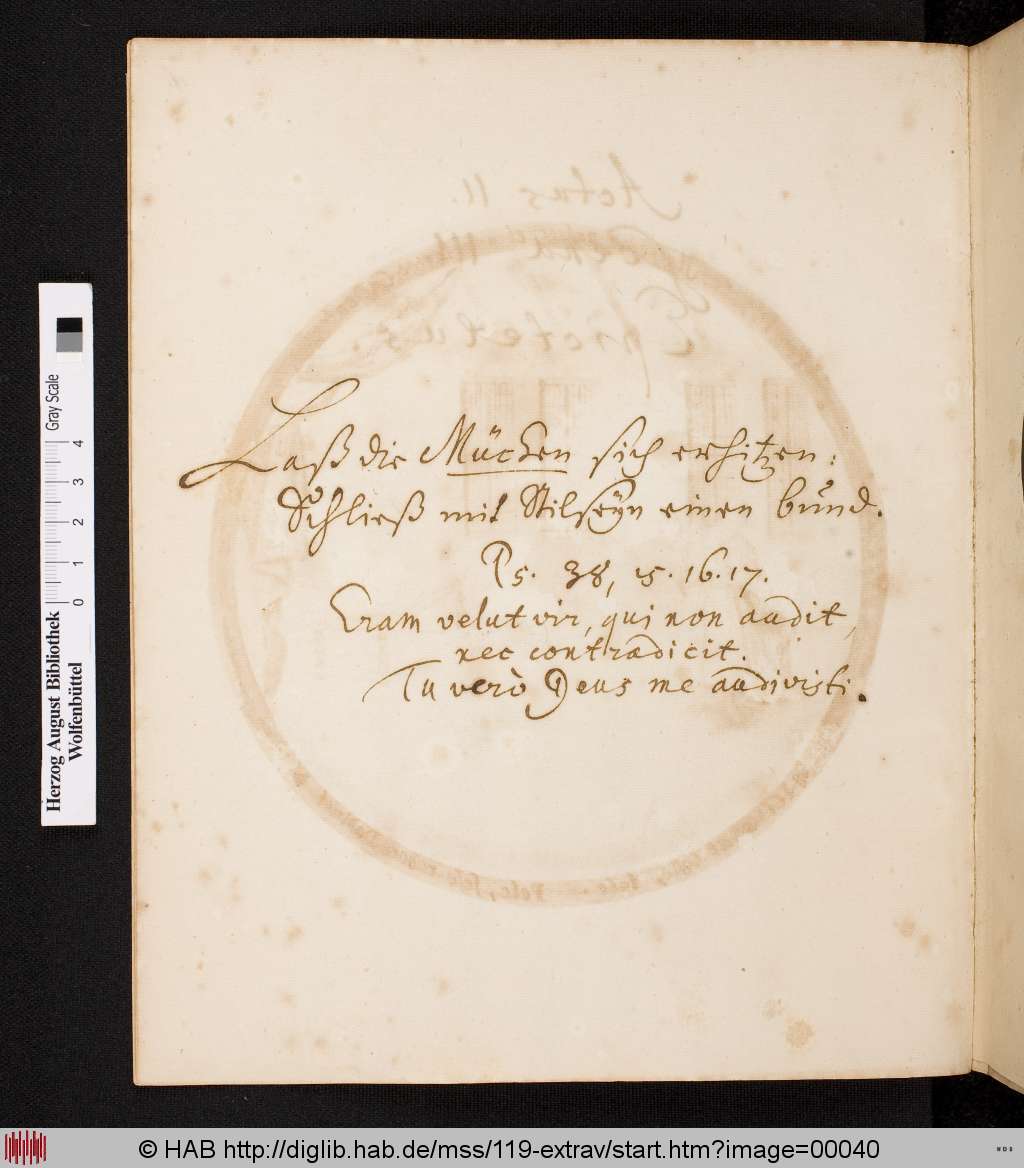 Laß die Mücken sich erhitzen:
Schließ mit Stilseÿn einen bund.
Ps. 38, 15. 16. 17.
Eram velut vir, qui non audit,
nec contradicit.
Tu verò Deus me audivisti.
Actus II.
III
Epictetus.
Gray Scale
0 1 2 3 4
Herzog August Bibliothek
Wolfenbüttel
© HAB http://diglib.hab.de/mss/119-extrav/start.htm?image=00040